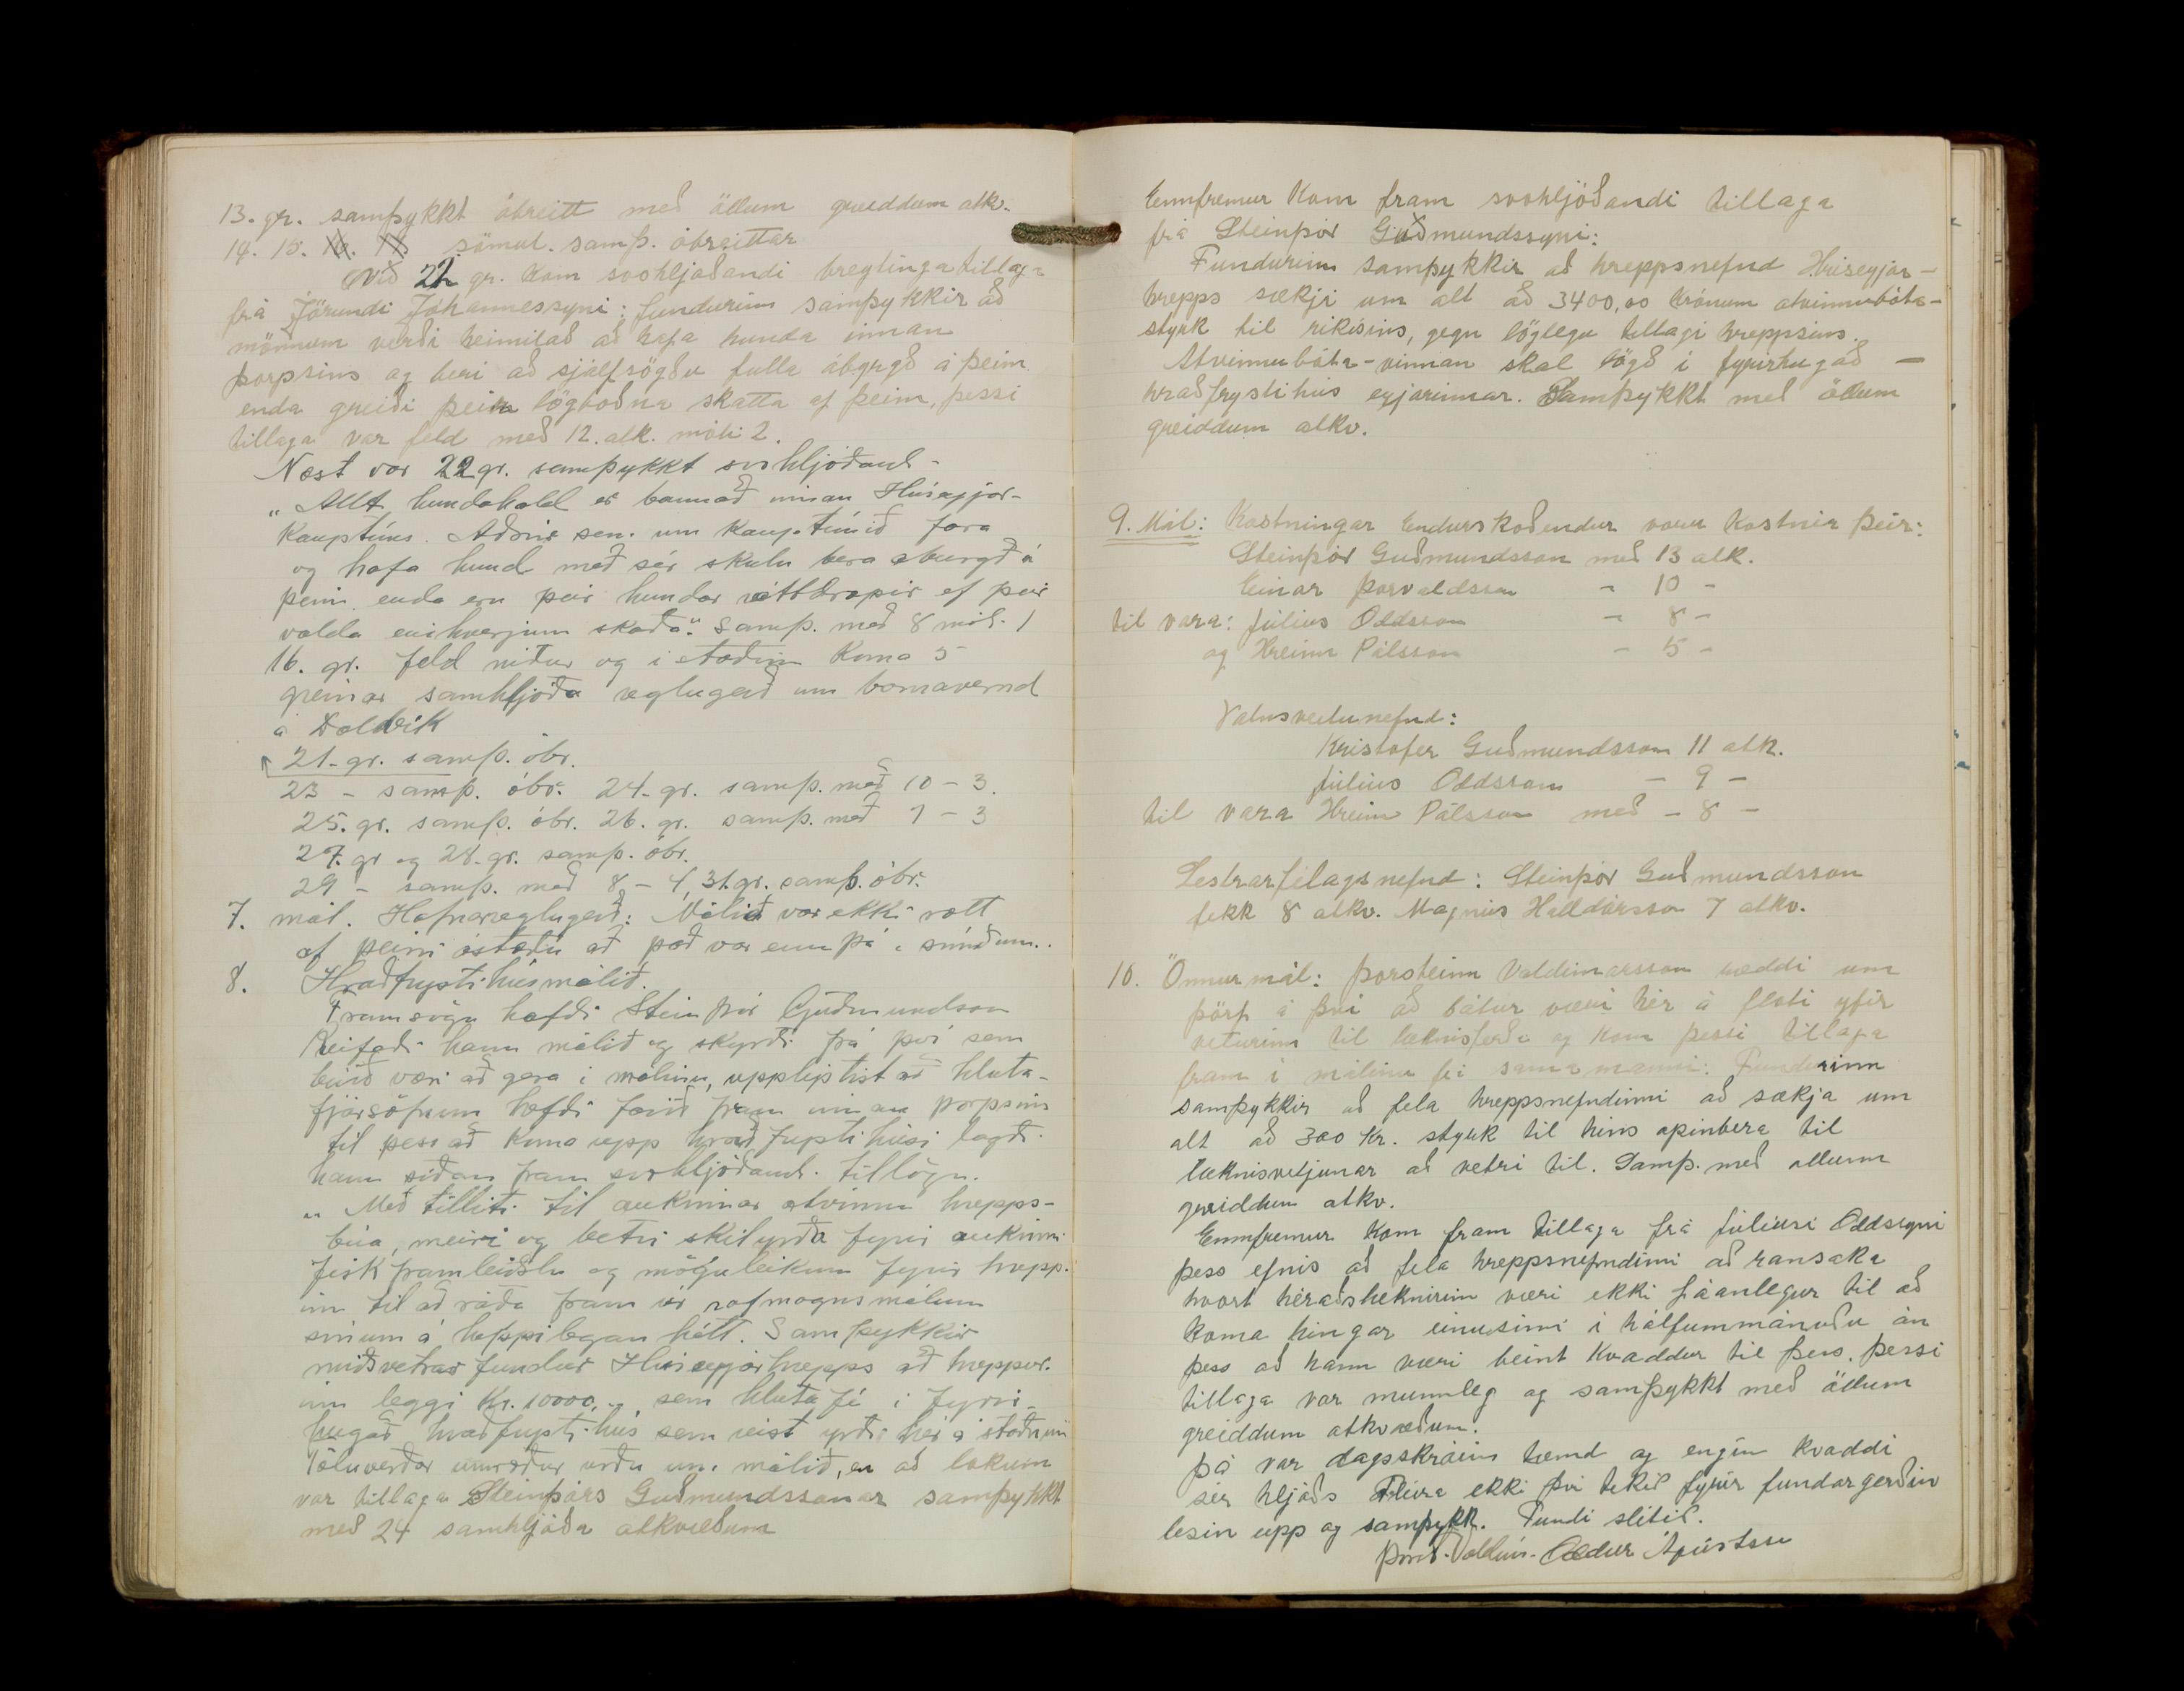 13. gr. samþykkt óbreitt með öllum greiddum atk.
14. 15. 16. 17. sömul. samþ. óbreittar
Við 22 gr. kom svohljóðandi breytingatillaga
frá Jörundi Jóhannessyni: fundurinn samþykkir að
mönnum verði heimilað að hafa hunda innan
þorpsins og beri að sjálfsögðu fulla ábyrgð á þeim
enda greiði þeir lögboðna skatta af þeim, þessi
tillaga var feld með 12. atk. móti 2.
Næst var 22 gr. samþykkt svohljóðand-
„Allt hundahald er bannað innan Hríseyjar-
kauptúns. Aðrir sem um kauptúnið fara
og hafa hund með sér skulu bera ábyrgð á
þeim enda eru þeir hundar réttdræpir ef þeir
valda einhverjum skaða." Samþ. með 8 mót. 1
16. gr. feld niður og í staðinn koma 5
greinar samhljóða reglugerð um barnavernd
á Dalvík
21. gr. samþ. óbr.
23 - samþ. óbr. 24. gr. samþ. með 10 - 3.
25. gr. samþ. óbr. 26. gr. samþ. með 7 - 3
27. gr og 28. gr. samþ. óbr.
29 - samþ. með 8 - 4, 31. gr. samþ. óbr.
7. mál. Hafnarreglugerð: Málið var ekki rætt
af þeirri ástæðu að það var enn þá í smíðum.
8. Hraðfrystihúsmálið.
Framsögu hafði Steinþór Guðmundson
Reifaði hann málið og skyrði frá því sem
búið væri að gera í málinu, upplýstist að hluta-
fjársöfnun hefði farið fram innan þorpsins
til þess að koma upp hraðfrystihúsi lagði
hann síðan fram svohljóðandi tillögu.
„Með tilliti til aukinnar atvinnu hrepps-
búa, meiri og betri skilyrða fyrir aukinni
fiskframleiðslu og möguleikum fyrir hrepp-
inn til að ráða fram úr rafmagnsmálum
sínum á heppilegan hátt. Samþykkir
miðsvetrarfundur Hríseyjarhrepps að hreppur-
inn leggi kr. 10000,- sem hlutafé í fyrir-
hugað hraðfrystihús sem reist yrði hér á staðnum
Töluverðar umræður urðu um málið, en að lokum
var tillaga Steinþórs Guðmundssonar samþykkt
með 24 samhljóða atkvæðum
Ennfremur kom fram svohljóðandi tillaga
frá Steinþór Guðmundssyni:
Fundurinn samþykkir að hreppsnefnd Hríseyjar-
hrepps sækji um alt að 3400,00 krónum atvinnubóta-
styrk til ríkisins, gegn löglegu tillagi hreppsins.
Atvinnubóta-vinnan skal lögð í fyrirhugað -
hraðfrystihús eyjarinnar. Samþykkt með öllum
greiddum atkv.
9. Mál: Kostningar Endurskoðendur voru kostnir þeir:
Steinþór Guðmundsson með 13 atk.
Einar Þorvaldsson - 10 -
til vara: Júlíus Oddsson - 8 -
og Hreinn Pálsson - 5 -
Vatnsveitunefnd:
Kristofer Guðmundsson 11 atk.
Júlíus Oddsson - 9 -
til vara Hreinn Pálsson með - 8 -
Lestrarfélagsnefnd: Steinþór Guðmundsson
fekk 8 atkv. Magnús Halldórsson 7 atkv.
10. Önnur mál: Þorsteinn Valdimarsson ræddi um
þörf á því að bátur væri hér á floti yfir
veturinn til læknisferða og kom þessi tillaga
fram í málinu frá sama manni: Fundurinn
samþykkir að fela hreppsnefndinni að sækja um
alt að 300 kr. styrk til hins opinbera til
læknisvitjunar að vetri til. Samþ. með öllum
greiddum atkv.
Ennfremur kom fram tillaga frá Júlíusi Oddsyni
þess efnis að fela hreppsnefndinni að ransaka
hvort héraðslæknirinn væri ekki fáanlegur til að
koma hingar einusinni í hálfummánuðu án
þess að hann væri beint kvaddur til þess. Þessi
tillaga var munnleg og samþykkt með öllum
greiddum atkvæðum.
Þá var dagskráin tæmd og engin kvaddi
sér hljóðs Fleira ekki því tekið fyrir fundargerðin
lesin upp og samþykk. Fundi slitið.
Þorst. Valdim. Oddur Ágústsson